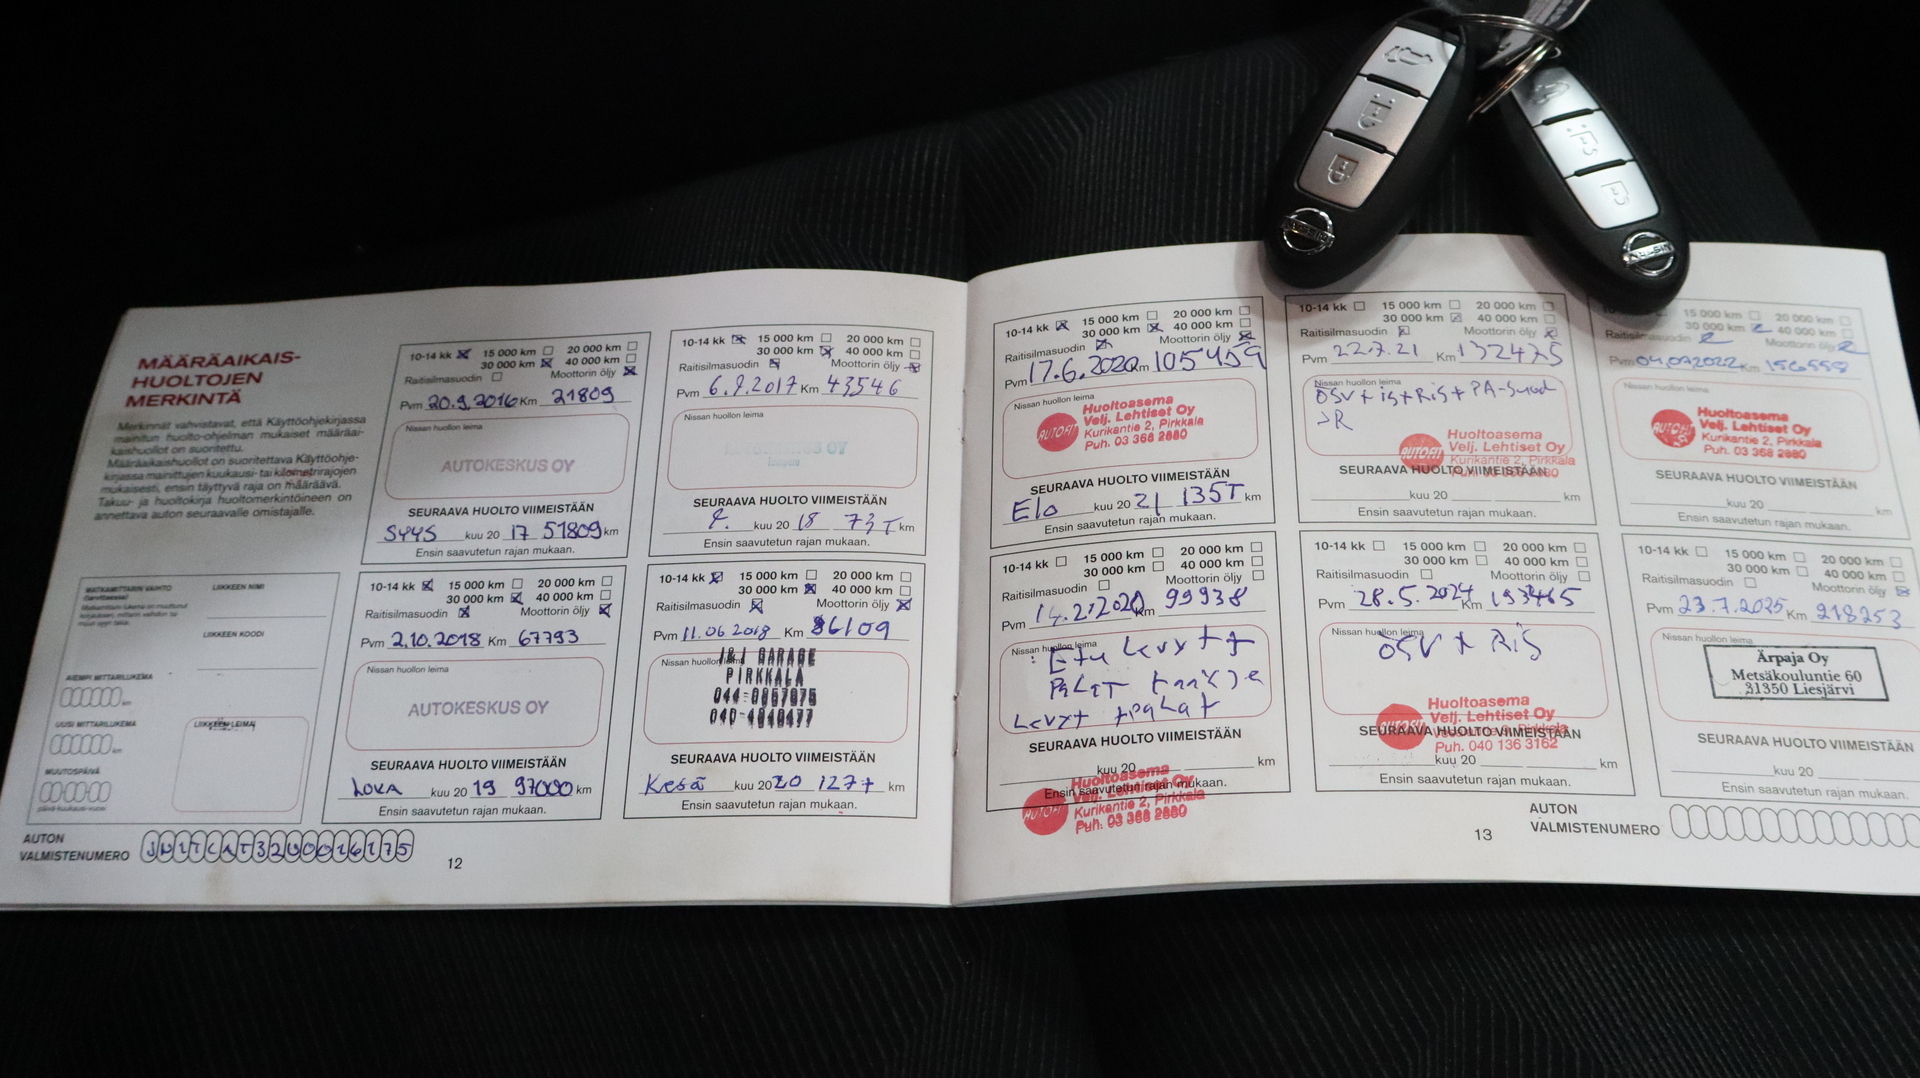 MÄÄRÄAIKAIS-
HUOLTOJEN
MERKINTÄ
Merkinnät vahvistavat, että Käyttöohjekirjassa
mainitun huolto-ohjelman mukaiset määräai-
kaishuollot on suoritettu.
Määräaikaishuollot on suoritettava Käyttöohje-
kirjassa mainittujen kuukausi- tai kilometrirajojen
mukaisesti, ensin täyttyvä raja on määräävä.
Takuu- ja huoltokirja huoltomerkintöineen on
annettava auton seuraavalle omistajalle.
MATKAMITTARIN VAIHTO
LIIKKEEN NIMI
LIIKKEEN KOODI
AIEMPI MITTARILUKEMA
km
UUSI MITTARILUKEMA
km
MUUTOSPÄIVÄ
LIIKKEEN LEIMA
10-14 kk 15 000 km 20 000 km
30 000 km 40 000 km
Raitisilmasuodin Moottorin öljy
Pvm 20.9.2016 Km 21809
Nissan huollon leima
AUTOKESKUS OY
SEURAAVA HUOLTO VIIMEISTÄÄN
SYYS kuu 20 17 51809 km
Ensin saavutetun rajan mukaan.
10-14 kk 15 000 km 20 000 km
30 000 km 40 000 km
Raitisilmasuodin Moottorin öljy
Pvm 6.9.2017 Km 43546
Nissan huollon leima
AUTOKESKUS OY
SEURAAVA HUOLTO VIIMEISTÄÄN
9. kuu 20 18 73T km
Ensin saavutetun rajan mukaan.
10-14 kk 15 000 km 20 000 km
30 000 km 40 000 km
Raitisilmasuodin Moottorin öljy
Pvm 2.10.2018 Km 67793
Nissan huollon leima
AUTOKESKUS OY
SEURAAVA HUOLTO VIIMEISTÄÄN
LOKA kuu 20 19 97000 km
Ensin saavutetun rajan mukaan.
10-14 kk 15 000 km 20 000 km
30 000 km 40 000 km
Raitisilmasuodin Moottorin öljy
Pvm 11.06.2019 Km 86109
Nissan huollon leima
J&J GARAGE
PIRKKALA
SEURAAVA HUOLTO VIIMEISTÄÄN
Kesä kuu 20 20 127T km
Ensin saavutetun rajan mukaan.
AUTON
VALMISTENUMERO
12
10-14 kk 15 000 km 20 000 km
30 000 km 40 000 km
Raitisilmasuodin Moottorin öljy
Pvm 17.6.2020 Km 105459
Nissan huollon leima
AUTOFIT
Huoltoasema
Velj. Lehtiset Oy
Kurikantie 2, Pirkkala
Puh. 03 368 2880
SEURAAVA HUOLTO VIIMEISTÄÄN
Elo kuu 20 21 135T km
Ensin saavutetun rajan mukaan.
10-14 kk 15 000 km 20 000 km
30 000 km 40 000 km
Raitisilmasuodin Moottorin öljy
Pvm 22.7.21 Km 132475
Nissan huollon leima
ÖSV + is + Ris + PA-suod
JR
AUTOFIT
Huoltoasema
Velj. Lehtiset Oy
Kurikantie 2, Pirkkala
SEURAAVA HUOLTO VIIMEISTÄÄN
kuu 20 km
Ensin saavutetun rajan mukaan.
15 000 km 20 000 km
30 000 km 40 000 km
Raitisilmasuodin Moottorin öljy
Pvm 04.07.2022 Km 156558
Nissan huollon leima
AUTOFIT
Huoltoasema
Velj. Lehtiset Oy
Kurikantie 2, Pirkkala
Puh. 03 368 2880
SEURAAVA HUOLTO VIIMEISTÄÄN
kuu 20 km
Ensin saavutetun rajan mukaan.
10-14 kk 15 000 km 20 000 km
30 000 km 40 000 km
Raitisilmasuodin Moottorin öljy
Pvm 14.2.2020 Km 99938
Nissan huollon leima
Etu Levyt +
PALAT
Levyt + palat
SEURAAVA HUOLTO VIIMEISTÄÄN
kuu 20 km
Ensin saavutetun rajan mukaan.
AUTOFIT
Huoltoasema
Velj. Lehtiset Oy
Kurikantie 2, Pirkkala
Puh. 03 368 2880
10-14 kk 15 000 km 20 000 km
30 000 km 40 000 km
Raitisilmasuodin Moottorin öljy
Pvm 28.5.2024 Km 193465
Nissan huollon leima
ÖSV + Ris
AUTOFIT
Huoltoasema
Velj. Lehtiset Oy
SEURAAVA HUOLTO VIIMEISTÄÄN
Puh. 040 136 3162
kuu 20 km
Ensin saavutetun rajan mukaan.
10-14 kk 15 000 km 20 000 km
30 000 km 40 000 km
Raitisilmasuodin Moottorin öljy
Pvm 23.7.2025 Km 218253
Nissan huollon leima
Ärpaja Oy
Metsäkouluntie 60
31350 Liesjärvi
SEURAAVA HUOLTO VIIMEISTÄÄN
kuu 20 km
Ensin saavutetun rajan mukaan.
13
AUTON
VALMISTENUMERO